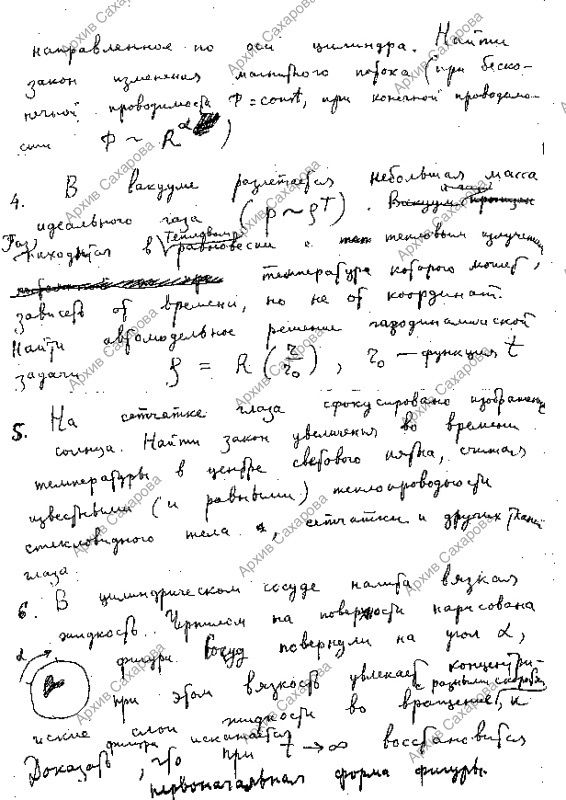 направленное по оси цилиндра. Найти
закон изменения магнитного потока (при беско-
нечной проводимости Ф = const, при конечной проводимо-
сти Ф ~ R^α)
4. В вакууме разлетается небольшая масса
идеального газа (p ~ ρT).
Газ находится в тепловом равновесии с тепловым излучением,
температура которого может
зависеть от времени, но не от координат.
Найти автомодельное решение газодинамической
задачи ρ = R(r/r₀), r₀ — функция t
5. На сетчатке глаза сфокусировано изображение
солнца. Найти закон увеличения во времени
температуры в центре светового пятна, считая
известными (и равными) теплопроводности
стекловидного тела, сетчатки и других тканей
глаза.
6. В цилиндрическом сосуде налита вязкая
жидкость. Чернилом на поверхности нарисована
α фигура. Сосуд повернули на угол α,
при этом вязкость увлекает концентри-
ческие слои жидкости во вращение с разными скоростями, и
фигура искажается
Доказать, что при t → ∞ восстановится
первоначальная форма фигуры.
Архив Сахарова
Архив Сахарова
Архив Сахарова
Архив Сахарова
Архив Сахарова
Архив Сахарова
Архив Сахарова
Архив Сахарова
Архив Сахарова
Архив Сахарова
Архив Сахарова
Архив Сахарова